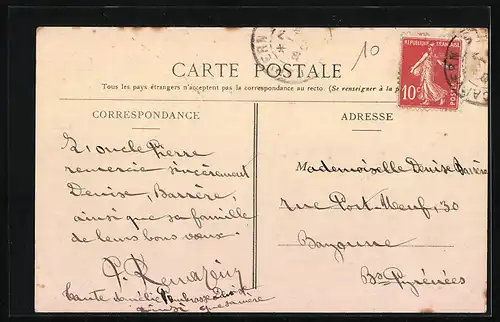 10
CARTE POSTALE
Tous les pays étrangers n'acceptent pas la correspondance au recto. (Se renseigner à la
RÉPUBLIQUE FRANÇAISE
10c
POSTES
CORRESPONDANCE
L'oncle Pierre
remercie sincèrement
Denise, Barrère,
ainsi que sa famille
de leurs bons vœux.
P.
Tante
ainsi que sa mère
ADRESSE
Mademoiselle Denise Barrère
rue Port Neuf, 30
Bayonne
Bses Pyrénées